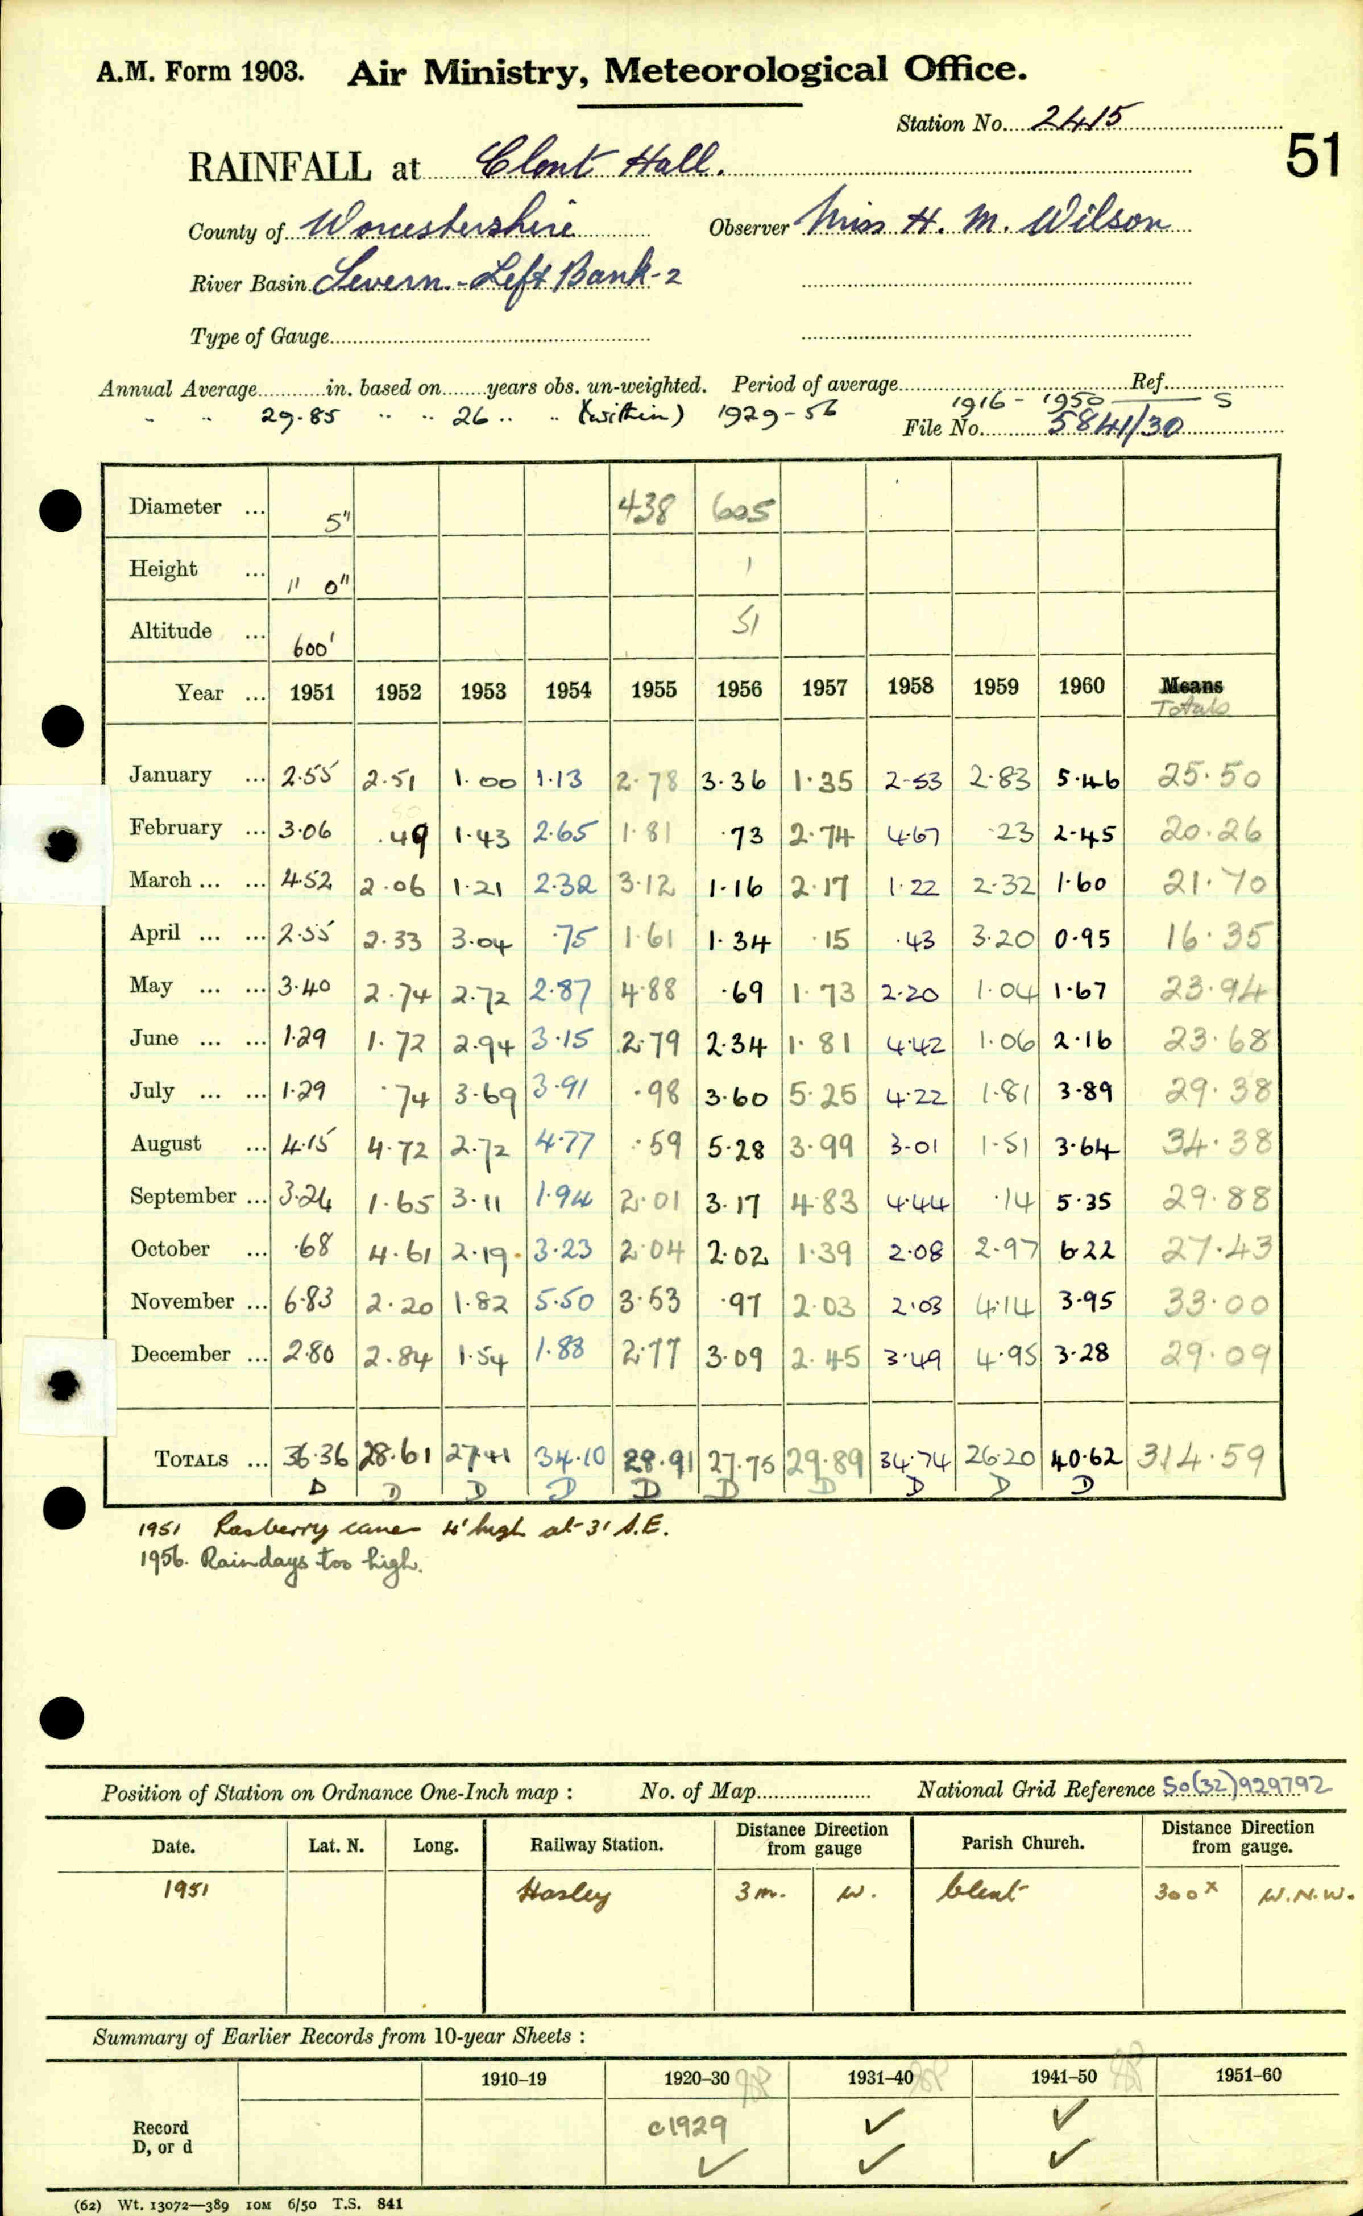 A.M. Form 1903. Air Ministry, Meteorological Office.
Station No. 2415
51
RAINFALL at Clent Hall.
County of Worcestershire Observer Miss H. M. Wilson
River Basin Severn - Left Bank - 2
Type of Gauge
Annual Average in. based on years obs. un-weighted. Period of average 1916 - 1950 Ref. S
" " 29.85 " " 26 " " (within) 1929 - 56 File No. 5841/30
Diameter ... 5" 438 605
Height ... 1' 0" 1
Altitude ... 600' 51
Year ... 1951 1952 1953 1954 1955 1956 1957 1958 1959 1960 Means
Totals
January ... 2.55 2.51 1.00 1.13 2.78 3.36 1.35 2.53 2.83 5.46 25.50
February ... 3.06 .49 1.43 2.65 1.81 .73 2.74 4.67 .23 2.45 20.26
March ... ... 4.52 2.06 1.21 2.32 3.12 1.16 2.17 1.22 2.32 1.60 21.70
April ... ... 2.55 2.33 3.04 .75 1.61 1.34 .15 .43 3.20 0.95 16.35
May ... ... 3.40 2.74 2.72 2.87 4.88 .69 1.73 2.20 1.04 1.67 23.94
June ... ... 1.29 1.72 2.94 3.15 2.79 2.34 1.81 4.42 1.06 2.16 23.68
July ... ... 1.29 .74 3.69 3.91 .98 3.60 5.25 4.22 1.81 3.89 29.38
August ... 4.15 4.72 2.72 4.77 .59 5.28 3.99 3.01 1.51 3.64 34.38
September ... 3.24 1.65 3.11 1.94 2.01 3.17 4.83 4.44 .14 5.35 29.88
October ... .68 4.61 2.19 3.23 2.04 2.02 1.39 2.08 2.97 6.22 27.43
November ... 6.83 2.20 1.82 5.50 3.53 .97 2.03 2.03 4.14 3.95 33.00
December ... 2.80 2.84 1.54 1.88 2.77 3.09 2.45 3.49 4.95 3.28 29.09
TOTALS ... 36.36 28.61 27.41 34.10 28.91 27.75 29.89 34.74 26.20 40.62 314.59
D D D D D D D D D D
1951 Rasberry canes 4' high at 3' S.E.
1956. Raindays too high.
Position of Station on Ordnance One-Inch map : No. of Map National Grid Reference SO(32)929792
Date. Lat. N. Long. Railway Station. Distance from gauge Direction Parish Church. Distance from gauge. Direction
1951 Hagley 3 m. W. Clent 300x W.N.W.
Summary of Earlier Records from 10-year Sheets :
1910–19 1920–30 1931–40 1941–50 1951–60
Record c1929 ✓ ✓
D, or d ✓ ✓ ✓
(62) Wt. 13072—389 10M 6/50 T.S. 841